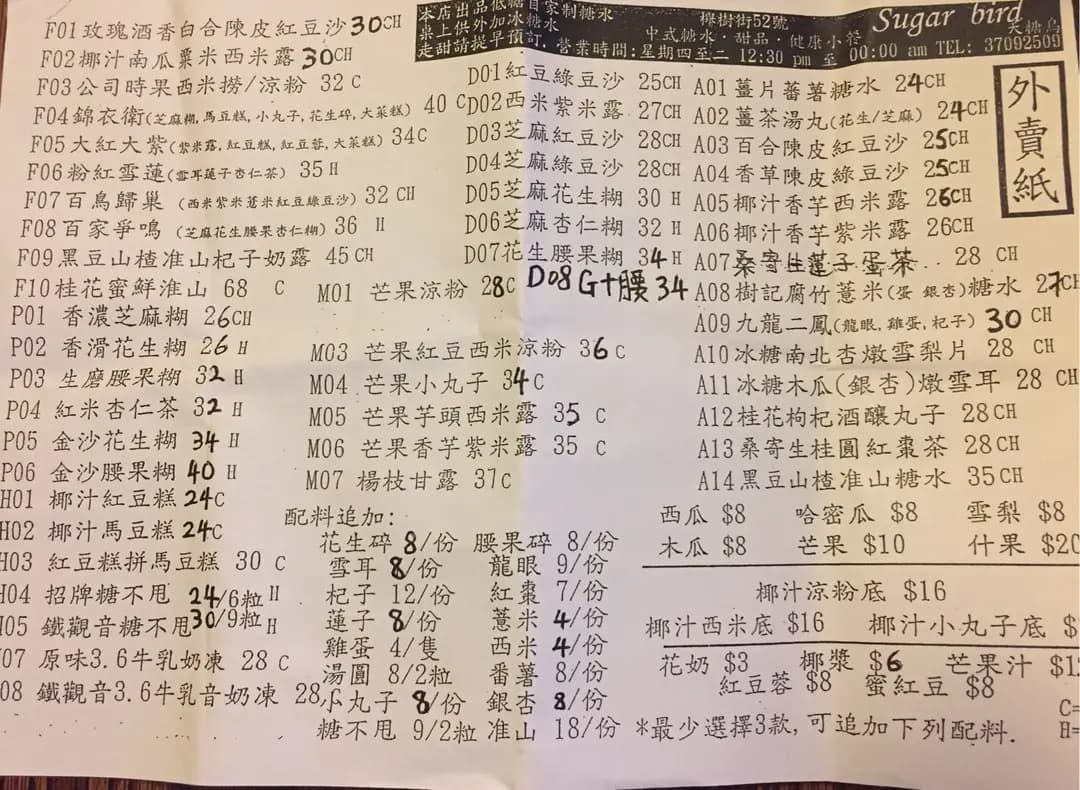 本店出品低糖
桌上供外加冰糖水
走甜請提早預訂,
自家制糖水
櫸樹街52號
中式糖水·甜品·健康小餐
營業時間:星期四至二 12:30 pm 至 00:00 am TEL: 37092509
Sugar bird
天糖鳥
外賣紙
F01玫瑰酒香白合陳皮紅豆沙30CH
F02椰汁南瓜粟米西米露30CH
F03公司時果西米撈/涼粉 32 C
F04錦衣衛(芝麻糊,馬豆糕,小丸子,花生碎,大菜糕) 40 C
F05大紅大紫(紫米露,紅豆糕,紅豆蓉,大菜糕) 34C
F06粉紅雪蓮(雪耳蓮子杏仁茶) 35 H
F07百鳥歸巢 (西米紫米薏米紅豆綠豆沙) 32 CH
F08百家爭鳴 (芝麻花生腰果杏仁糊) 36 H
F09黑豆山楂准山杞子奶露 45 CH
F10桂花蜜鮮淮山 68 C
P01 香濃芝麻糊 26CH
P02 香滑花生糊 26 H
P03 生磨腰果糊 32 H
P04 紅米杏仁茶 32 H
P05 金沙花生糊 34 H
P06 金沙腰果糊 40 H
H01 椰汁紅豆糕 24C
H02 椰汁馬豆糕 24C
H03 紅豆糕拼馬豆糕 30 C
H04 招牌糖不甩 24/6粒 H
H05 鐵觀音糖不甩 30/9粒 H
07 原味3.6牛乳奶凍 28 C
08 鐵觀音3.6牛乳音奶凍 28
D01紅豆綠豆沙 25CH
D02西米紫米露 27CH
D03芝麻紅豆沙 28CH
D04芝麻綠豆沙 28CH
D05芝麻花生糊 30 H
D06芝麻杏仁糊 32 H
D07花生腰果糊 34 H
D08 G+腰 34
M01 芒果涼粉 28C
M03 芒果紅豆西米涼粉 36 C
M04 芒果小丸子 34 C
M05 芒果芋頭西米露 35 C
M06 芒果香芋紫米露 35 C
M07 楊枝甘露 37C
配料追加:
花生碎 8/份 腰果碎 8/份
雪耳 8/份 龍眼 9/份
杞子 12/份 紅棗 7/份
蓮子 8/份 薏米 4/份
雞蛋 4/隻 西米 4/份
湯圓 8/2粒 番薯 8/份
小丸子 8/份 銀杏 8/份
糖不甩 9/2粒 准山 18/份
A01薑片蕃薯糖水 24CH
A02薑茶湯丸(花生/芝麻) 24CH
A03百合陳皮紅豆沙 25CH
A04香草陳皮綠豆沙 25CH
A05椰汁香芋西米露 26CH
A06椰汁香芋紫米露 26CH
A07桑寄生蓮子蛋茶.. 28 CH
A08樹記腐竹薏米(蛋 銀杏)糖水 27CH
A09九龍二鳳(龍眼,雞蛋,杞子) 30 CH
A10冰糖南北杏燉雪梨片 28 CH
A11冰糖木瓜(銀杏)燉雪耳 28 CH
A12桂花枸杞酒釀丸子 28CH
A13桑寄生桂圓紅棗茶 28CH
A14黑豆山楂准山糖水 35CH
西瓜 $8 哈密瓜 $8 雪梨 $8
木瓜 $8 芒果 $10 什果 $20
椰汁涼粉底 $16
椰汁西米底 $16 椰汁小丸子底 $
花奶 $3 椰漿 $6 芒果汁 $1
紅豆蓉 $8 蜜紅豆 $8
C=
*最少選擇3款,可追加下列配料. H=